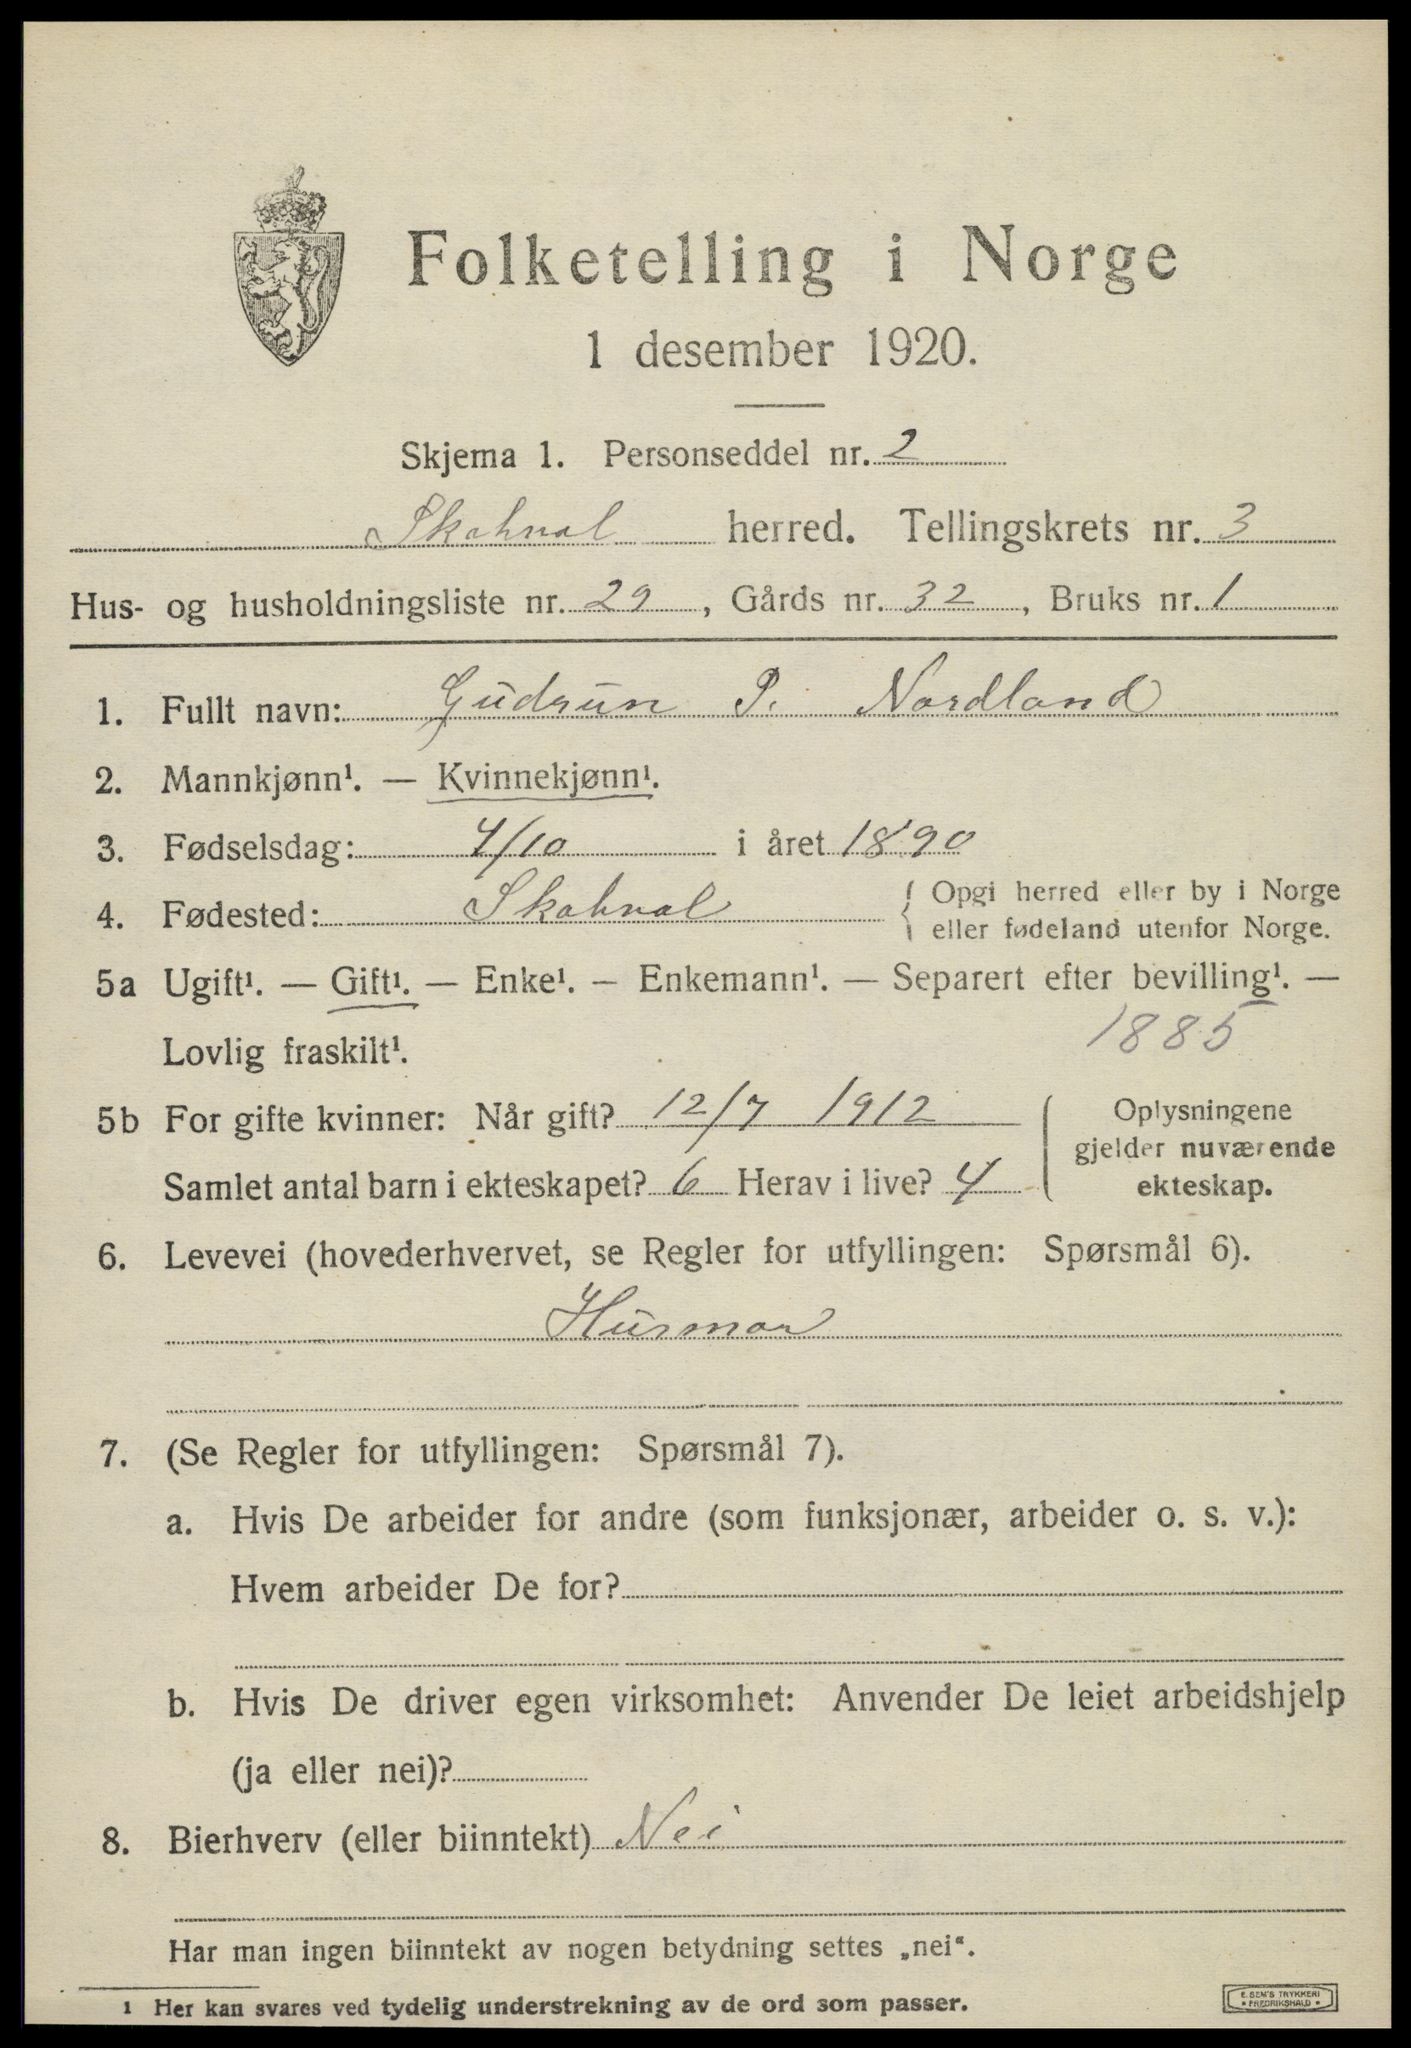 Folketelling i Norge
1 desember 1920.
Skjema 1. Personseddel nr. 2
Skatval herred. Tellingskrets nr. 3
Hus- og husholdningsliste nr. 29, Gårds nr. 32, Bruks nr. 1
1. Fullt navn: Gudrun P. Nordland
2. Mannkjønn¹. — Kvinnekjønn¹.
3. Fødselsdag: 4/10 i året 1890
4. Fødested: Skatval { Opgi herred eller by i Norge
eller fødeland utenfor Norge.
5a Ugift¹. — Gift¹. — Enke¹. — Enkemann¹. — Separert efter bevilling¹. —
1885
Lovlig fraskilt¹.
5b For gifte kvinner: Når gift? 12/7 1912
Samlet antal barn i ekteskapet? 6 Herav i live? 4
Oplysningene
gjelder nuværende
ekteskap.
6. Levevei (hovederhvervet, se Regler for utfyllingen: Spørsmål 6).
Husmor
7. (Se Regler for utfyllingen: Spørsmål 7).
a. Hvis De arbeider for andre (som funksjonær, arbeider o. s. v.):
Hvem arbeider De for?
b. Hvis De driver egen virksomhet: Anvender De leiet arbeidshjelp
(ja eller nei)?
8. Bierhverv (eller biinntekt) Nei
Har man ingen biinntekt av nogen betydning settes „nei“.
1 Her kan svares ved tydelig understrekning av de ord som passer.
E. SEM'S TRYKKERI
• FREDRIKSHALD •